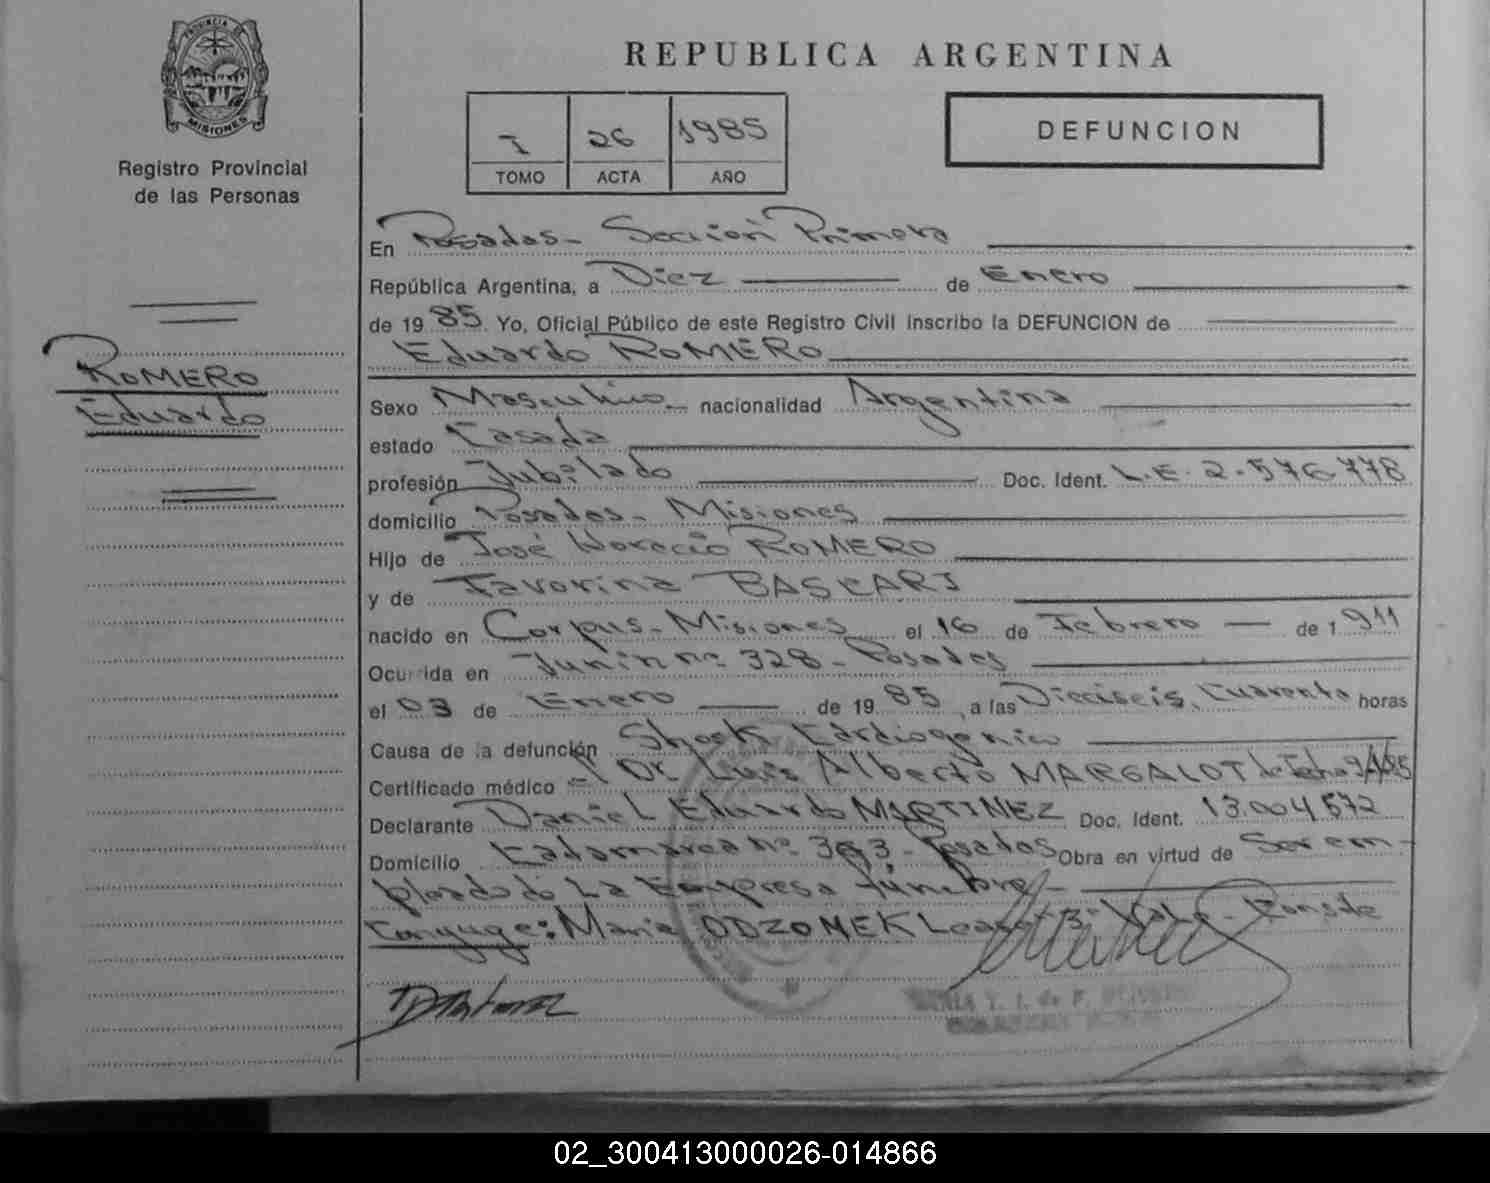 PROVINCIA DE
MISIONES
Registro Provincial
de las Personas
ROMERO
Eduardo
REPUBLICA ARGENTINA
I 26 1985
TOMO ACTA AÑO
DEFUNCION
En Posadas - Sección Primera
República Argentina, a Diez de Enero
de 19 85. Yo, Oficial Público de este Registro Civil inscribo la DEFUNCION de
Eduardo ROMERO
Sexo Masculino nacionalidad Argentina
estado Casado
profesión Jubilado Doc. Ident. L.E. 2.576.778
domicilio Posadas - Misiones
Hijo de José Horacio ROMERO
y de Favorina BASCARI
nacido en Corpus - Misiones el 16 de Febrero de 1 911
Ocurrida en Junín nº 328 - Posadas
el 03 de Enero de 19 85, a las Dieciseis, Cuarenta horas
Causa de la defunción Shock Cardiogenico
Certificado médico Dr Luis Alberto MARGALOT de fecha
Declarante Daniel Eduardo MARTINEZ Doc. Ident. 13.004.572
Domicilio Catamarca nº 363 - Posadas Obra en virtud de Ser em-
pleado de La Empresa fúnebre -
Conyuge: Maria ODZOMEK
02_300413000026-014866